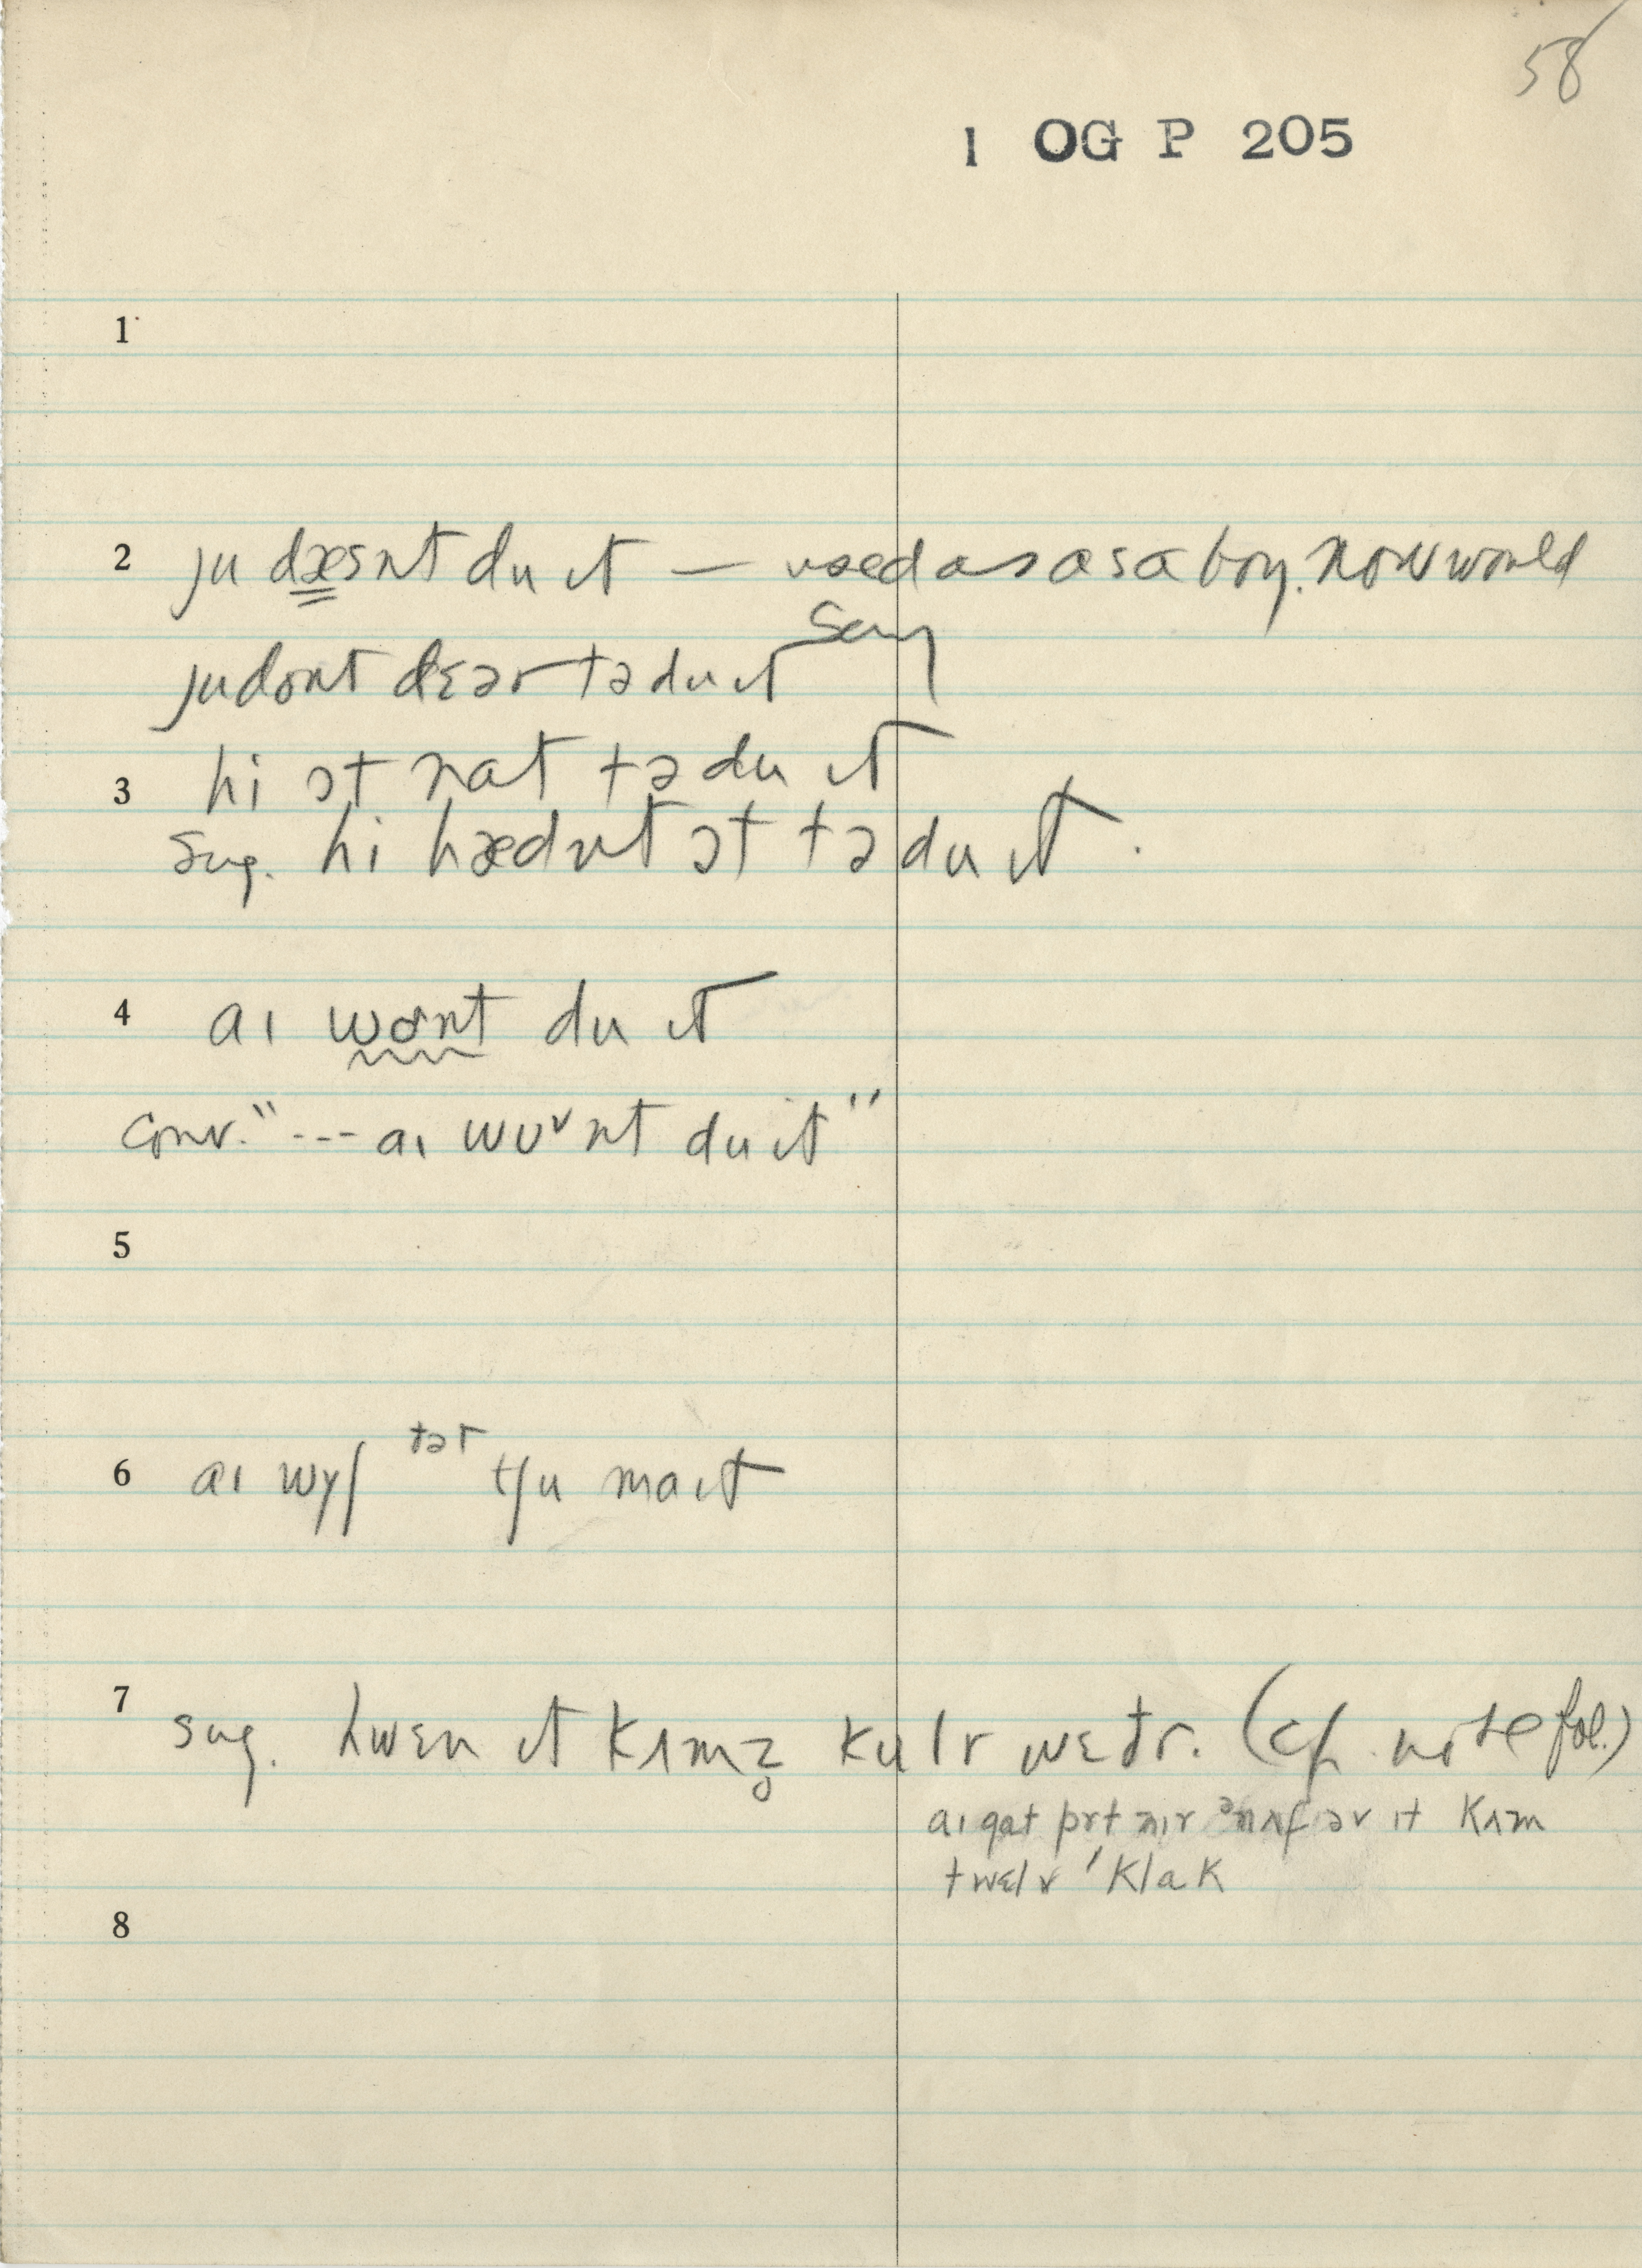 58
1 OG P 205
1
2 ju dæsnt du ɪt — used as as a boy. now would
say
ju dont dɛər tə du ɪt
3 hi ɔt nat tə du ɪt
sug. hi hædnt ɔt tə du ɪt.
4 aɪ wont du ɪt
conv. "--- aɪ wʊᵛnt du it"
5
tət
6 aɪ wyʃ tʃu maɪt
7 sug. hwɛn ɪt kʌmz̥ kulr wɛðr. (cf. note fol.)
aɪ gat prt nɪr ənʌf əv ɪt kʌm
twɛlv 'klak
8